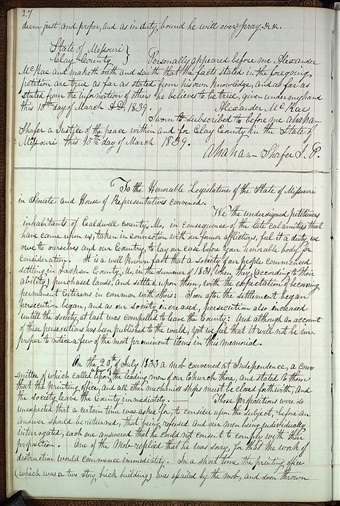 27
deem just and proper, and as in duty, bound he will ever pray &c.
State of Missouri }
Clay County } Personally appeared before me Alexander
McRae and maketh oath and saith that the facts stated in the foregoing
petition are true as far as stated from his own knowledge, and as far as
stated from the information of others he believes to be true, given under my hand
this 10th day of March A.D. 1839. Alexander McRae
Sworn to & subscribed to before me Abraham
Shafer a Justice of the peace within and for Clay County in the State of
Missouri this 10th day of March 1839.
Abraham Shafer J. P.
To the Honorable Legislature of the State of Missouri
in Senate and House of Representatives convened.
We the undersigned petitioners
inhabitants of Caldwell county, Mo, in consequence of the late calamities that
have came upon us, taken in connection with our former afflictions, feel it a duty we
owe to ourselves and our Country, to lay our case before your honorable body for
consideration. It is a well known fact that a society of our people commenced
settling in Jackson County, Mo, in the summer of 1831, when they, according to their
ability, purchased lands, and settled upon them, with the expectation of becoming
permanent citizens in common with others. Soon after the settlement began
persecution began, and as our society increased, persecution also increased
untill the society at last was compelled to leave the County; And although an account
of these persecutions has been published to the world, yet we feel that it will not be im-
proper to notice a few of the most prominent items in this memorial.
On the 20th of July 1833 a mob convened at Independence, a com-
mittee of which called upon the leading men of our Church there, and stated to them
that the printing office, and all other mechanics shops must be closed forthwith, and
the society leave the County immediately. These propositions were so
unexpected that a certain time was asked for, to consider upon the subject, before an
answer should be returned, that being refused and our men being individually
interrogated, each one answered that he could not consent to comply with their
propositions. One of the Mob replied that he was sorry, for that the work of
destruction would commence immediately. In a short time the printing office
(which was a two story brick building) was assailed by the mob, and soon thrown